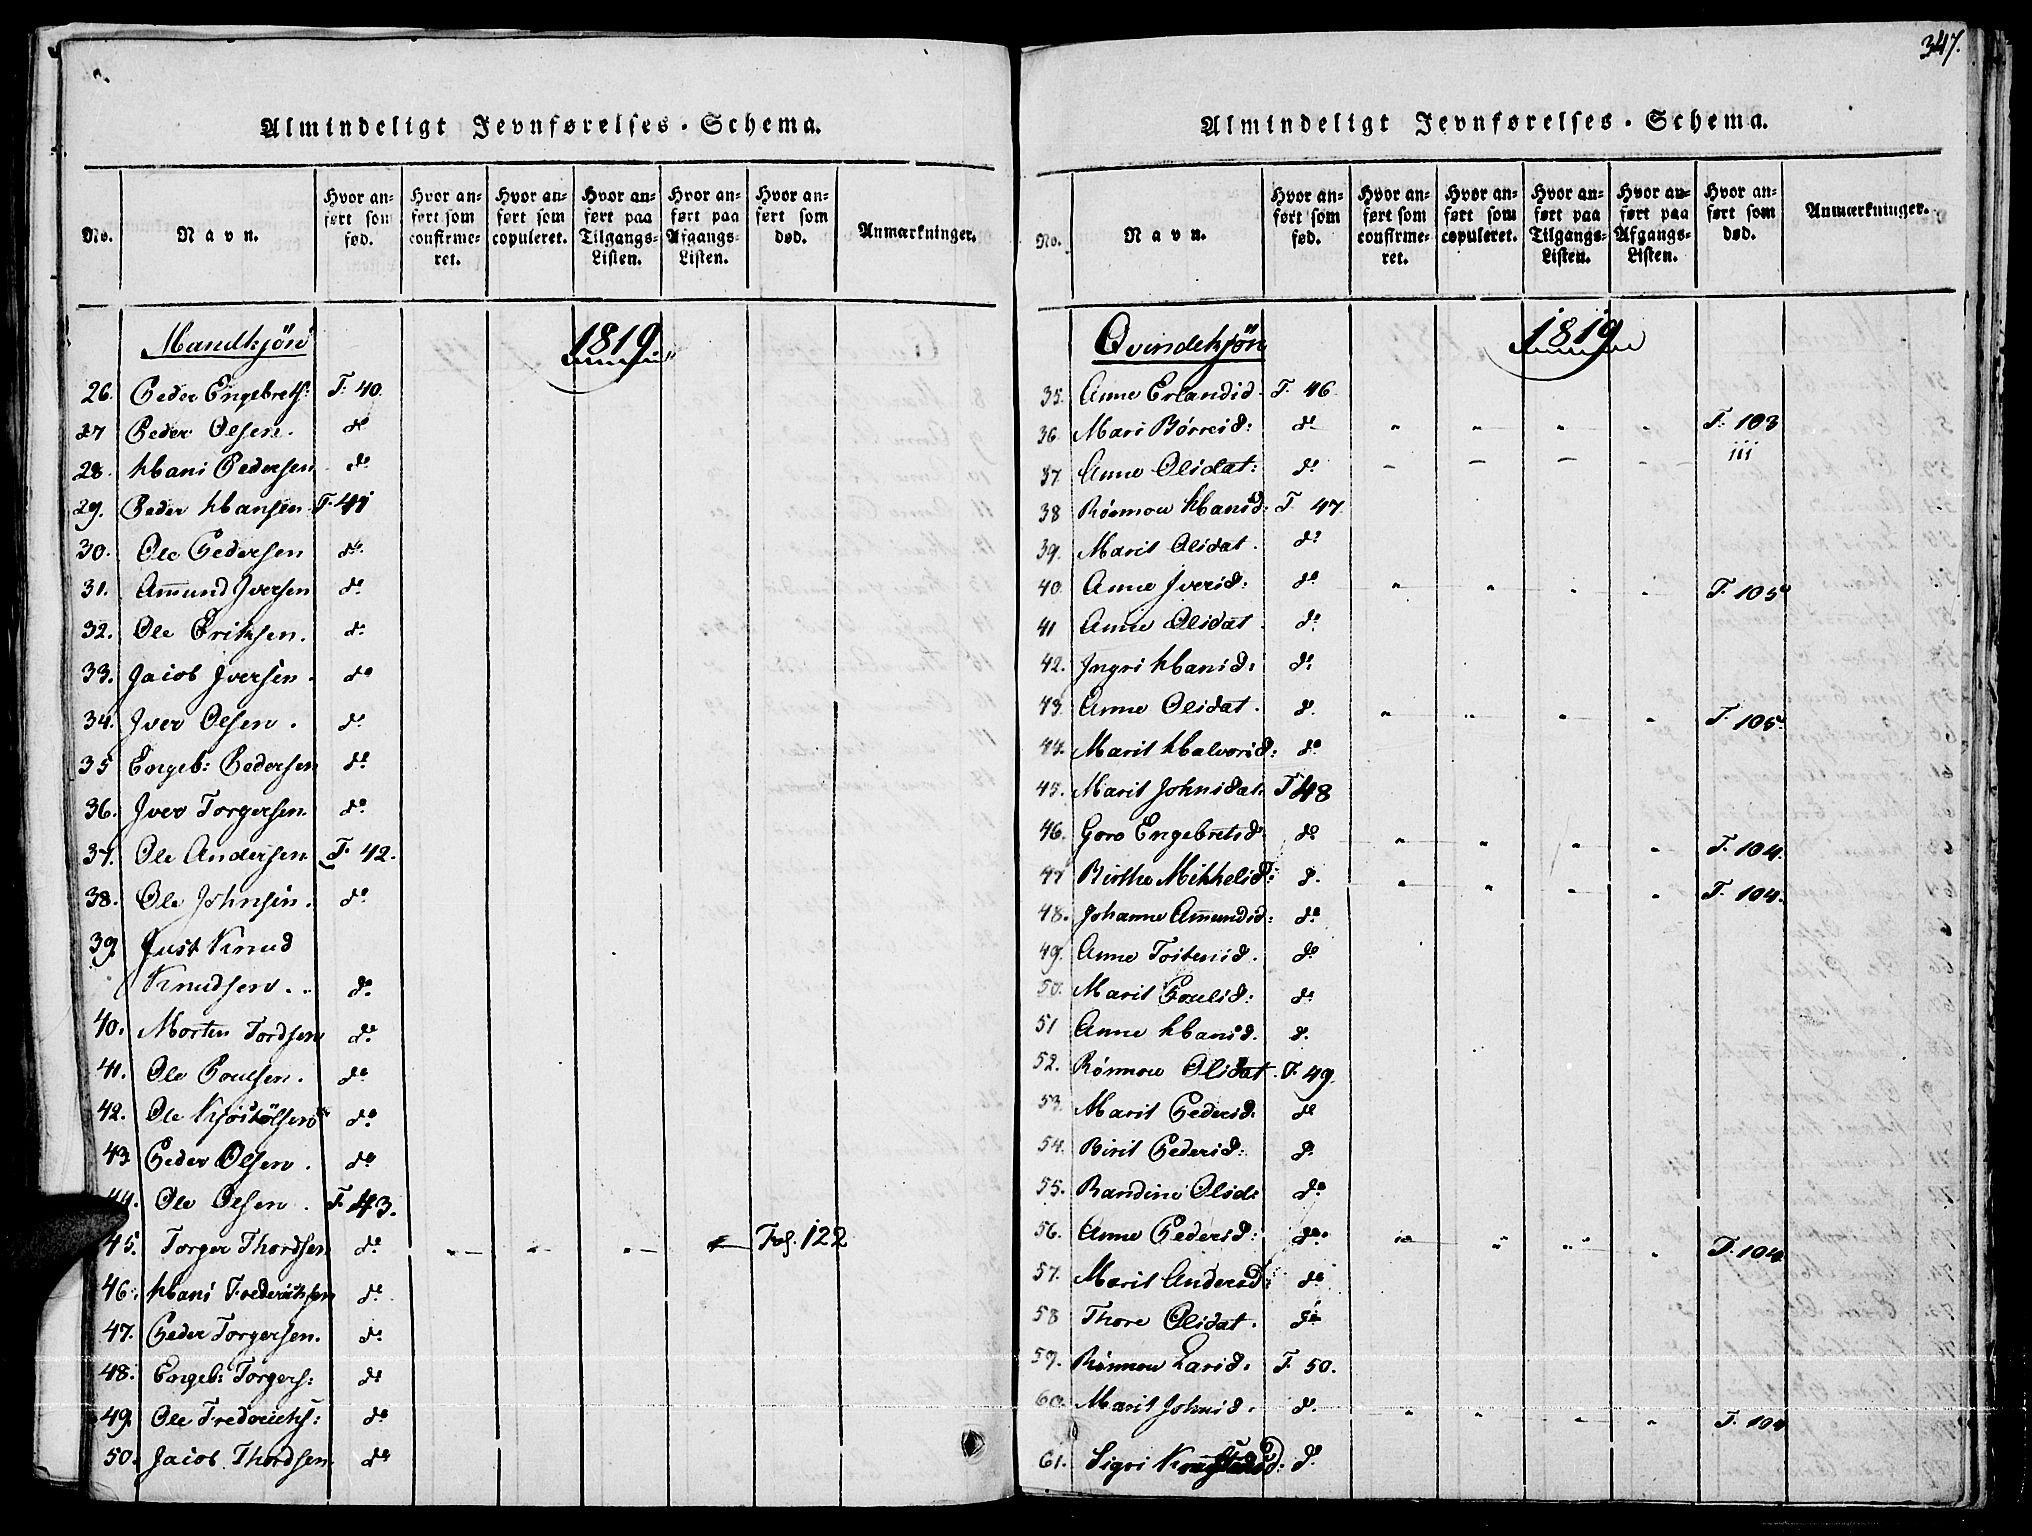 347.
Almindeligt Jevnførelses-Schema.
No. Navn. Hvor anført som fød. Hvor anført som confirmeret. Hvor anført som copuleret. Hvor anført paa Tilgangs-Listen. Hvor anført paa Afgangs-Listen. Hvor anført som død. Anmærkninger.
Mandkjön 1819
26. Peder Engebrets: F. 40.
27 Peder Olsen. do
28. Hans Pedersen do
29. Peder Hansen F. 41
30. Ole Pedersen do
31. Amund Iversen do
32. Ole Eriksen. do
33. Jacob Iversen. do
34. Iver Olsen. do
35 Engeb: Pedersen do
36. Iver Torgersen. do
37. Ole Andersen F. 42.
38. Ole Johnsen. do
39 Just Knud
Knudsen.. do
40. Morten Tordsen do
41. Ole Poulsen. do
42. Ole Kjöstölsen do
43 Peder Olsen. do
44. Ole Olsen. F. 43.
45. Torger Thordsen do " " " " Fol. 122
46. Hans Frederiksen do
47. Peder Torgersen. do
48. Engeb: Torgers: do
49. Ole Frederichs: do
50. Jacob Thordsen. do
Almindeligt Jevnførelses-Schema.
No. Navn. Hvor anført som fød. Hvor anført som confirmeret. Hvor anført som copuleret. Hvor anført paa Tilgangs-Listen. Hvor anført paa Afgangs-Listen. Hvor anført som død. Anmærkninger.
Qvindekjön 1819
35. Anne Erlandsd. F. 46
36. Mari Börresd: do " " " " F. 103
37. Anne Olsdat: do - - - - 111
38 Rönnow Hansd: F. 47.
39. Marit Olsdat. do
40. Anne Iversd: do " " " " F. 105
41 Anne Olsdat. do
42. Ingri Hansd: do
43. Anne Olsdat. do " " " " F. 105
44. Marit Halvorsd: do
45. Marit Johnsdat. F 48
46. Goro Engebretsd do " " " " F. 104.
47 Birthe Mikkelsd: do " " " " F. 104.
48. Johanne Amundsd: do
49. Anne Tostensd. do
50. Marit Poulsd: do
51 Anne Hansd. do
52. Rönnow Olsdat. F. 49.
53. Marit Pedersd. do
54. Birit Pedersd: do
55. Randine Olsd: do
56. Anne Pedersd: do " " " " F. 104
57. Marit Andersd: do
58 Thore Olsdat. do
59. Rönnow Larsd. F. 50.
60. Marit Johnsd. do " " " " F. 104
61. Sigri do